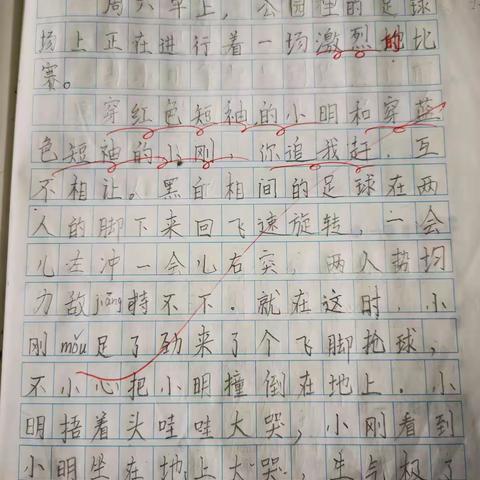 周六早上，公园里的足球
场上正在进行着一场激烈的比
赛。
穿红色短袖的小明和穿蓝
色短袖的小刚，你追我赶，互
不相让。黑白相间的足球在两
人的脚下来回飞速旋转，一会
儿左冲一会儿右突，两人势均
力敌jiāng持不下．就在这时，小
刚mǒu足了劲来了个飞脚抢球，
不小心把小明撞倒在地上．小
明捂着头哇哇大哭，小刚看到
小明坐在地上大哭，生气极了